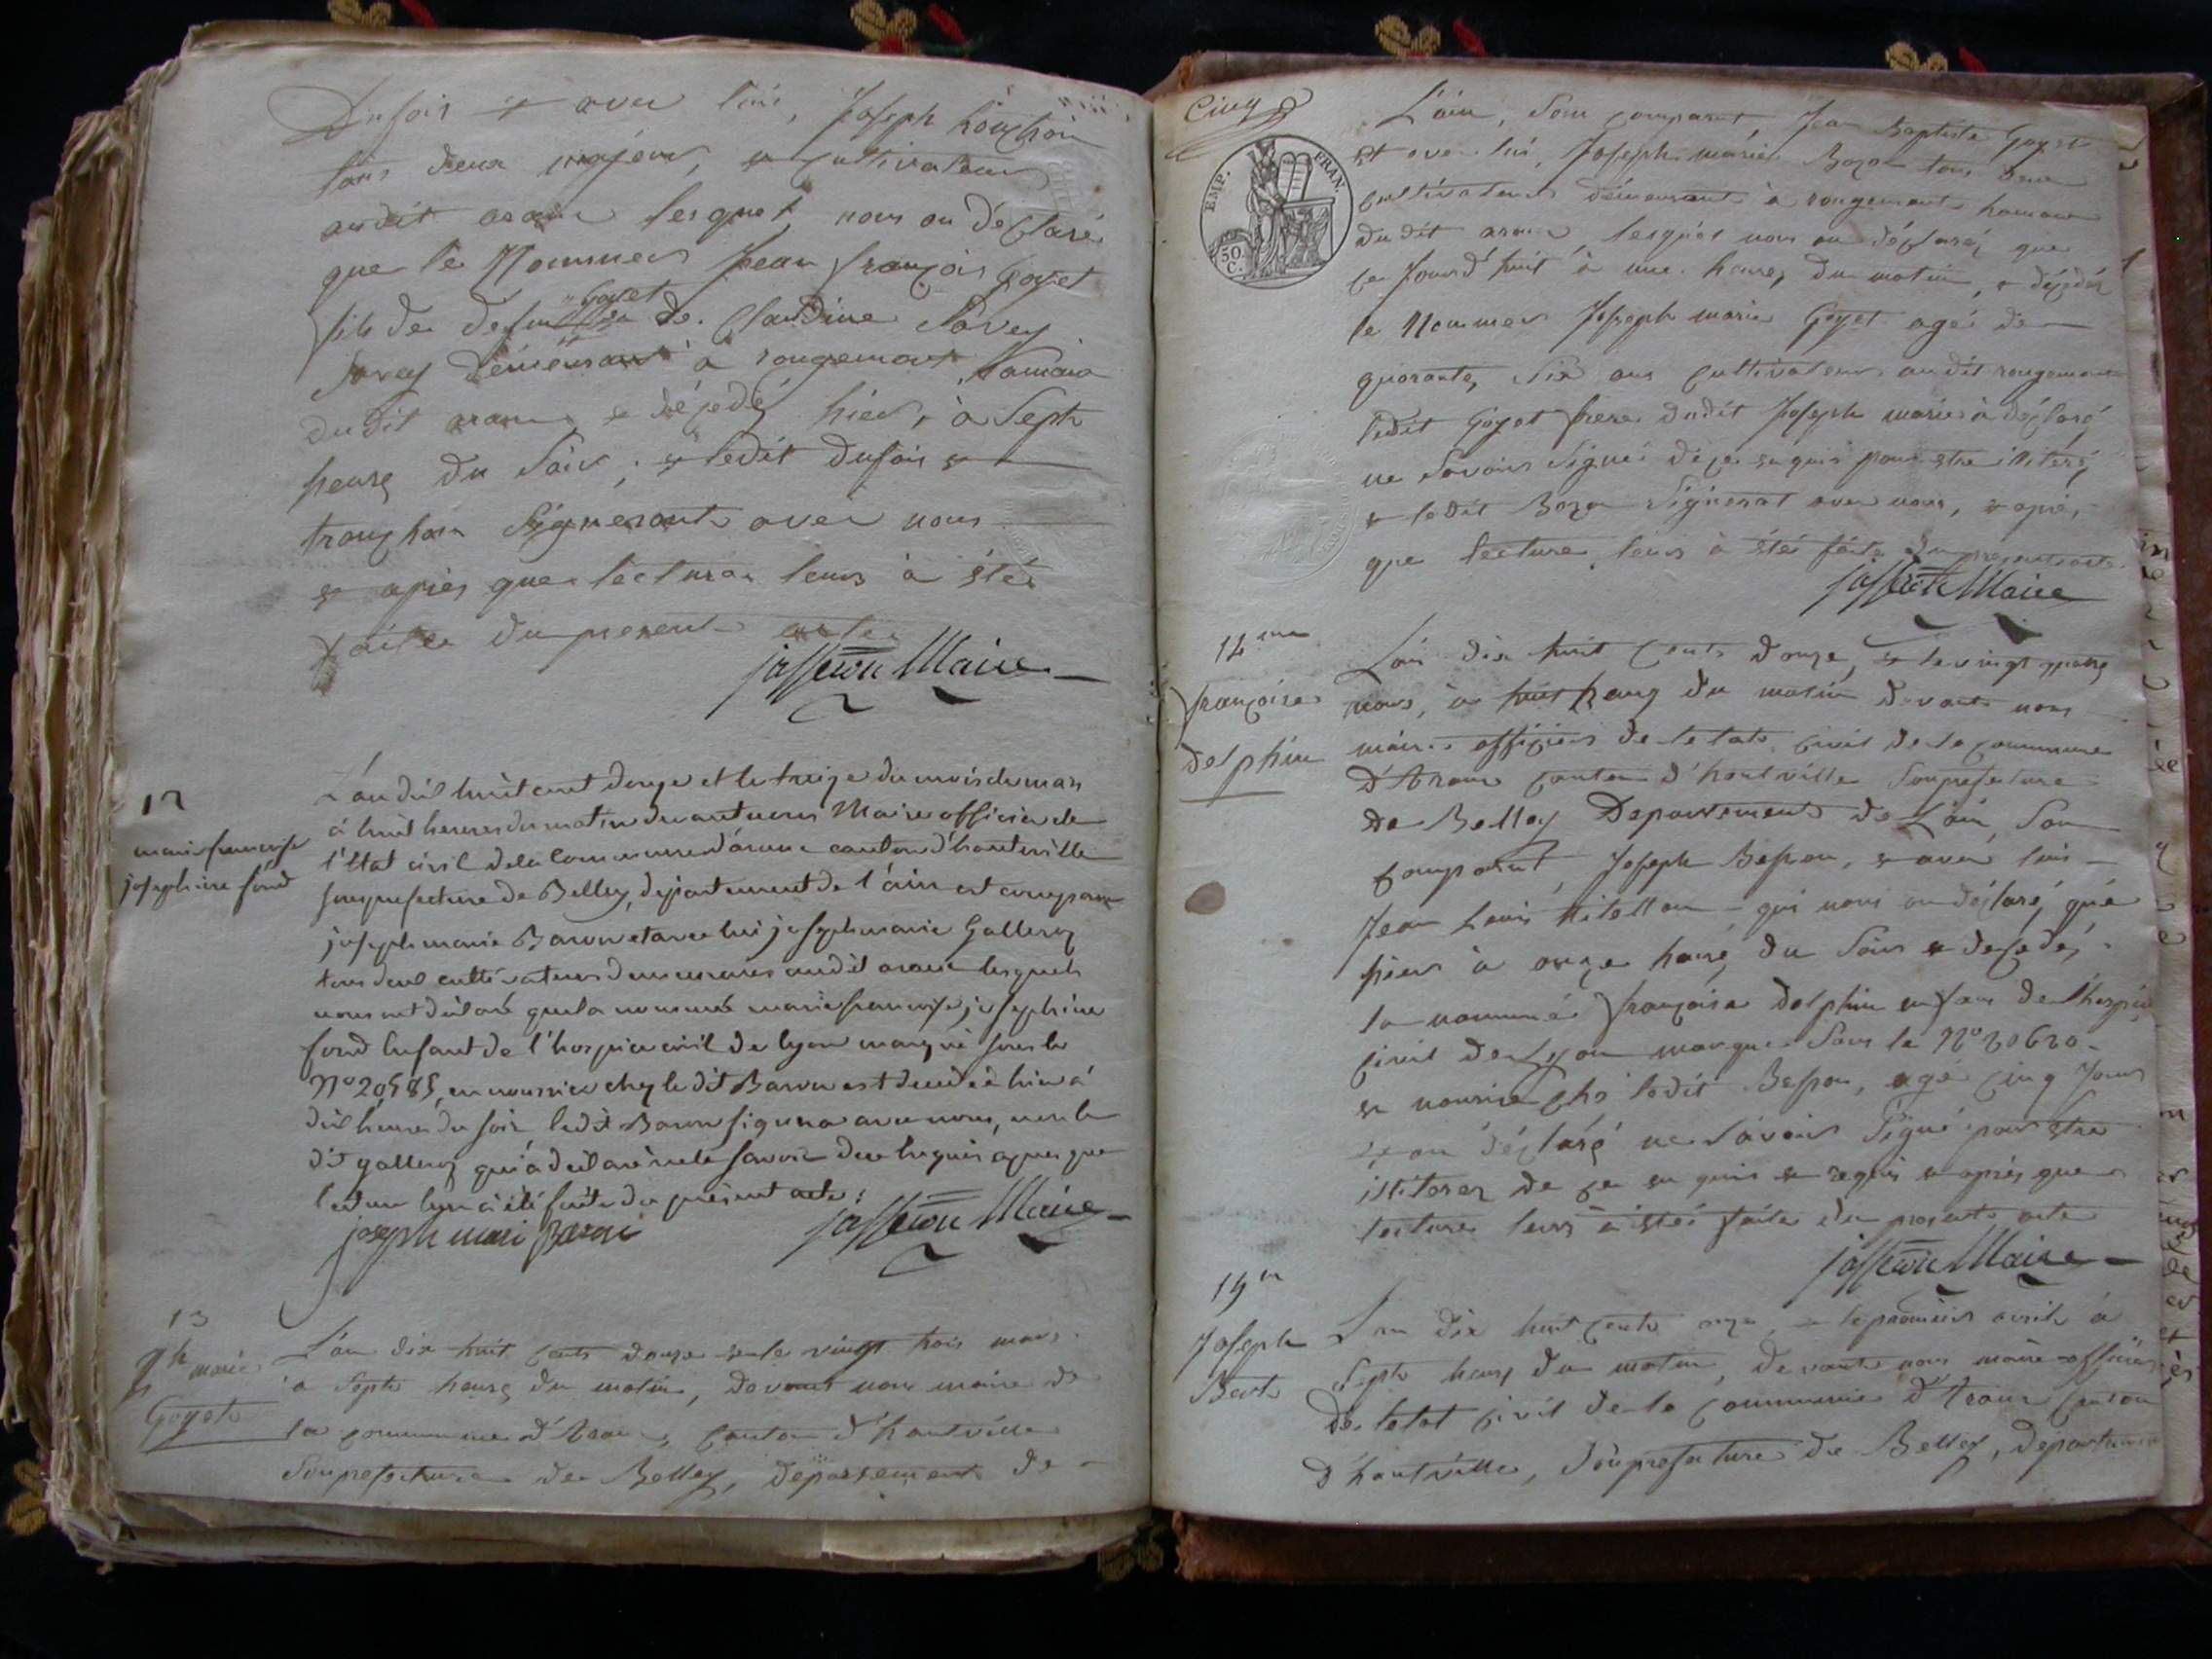 Dufois et avec lui, Joseph
tous deux majeur, et cultivateur
audit arane lesquel nous on déclaré
que le Nommer Jean françois Goyet
Goyet
fils de defun de Claudine Savey
Savey démeurant à rougemont, hamau
dudit arane, et déjedé hier, à Sept
heure du Soir, et ledit Dufois et
tronchon Signeront avec nous
et après que lectura leur à étée
faite du présent acte
jasseron Maire
12
marie francoise
josephine fond
L'an dix huit cent douze et le treize du mois de mars
à huit heures du matin devant nous Maire officier de
l'état civil de la Commune d'arane canton d'hauteville
souprefecture de Belley, departement de l'ain est comparu
joseph marie Baron et avec lui joseph marie Galleroz
tous deux cultivateurs demeurants audit arane lesquels
nous ont déclaré que la nommée marie francoise josephine
fond Enfant de l'hospice civil de lyon marqué sous le
N° 20585, en nourrice chez le dit Baron est decedée hier à
dix heures du soir ledit Baron signera avec nous, non le
dit galleroz qui à declaré ne le savoir de ce enquis apres que
lecture leur à été faite du présent acte :
joseph mari Baron jasseron Maire
13
jh marie
Goyet
L'an dix huit cents douze et le vingt trois mars
a Septe heure du matin, devant nous maire de
la commune d'Arane, canton d'hautville
Souprefecture de Belley, département de
Cinq
EMP. FRAN.
50 C.
L'ain, Son comparut, Jean Baptiste Goyet
et avec lui, Joseph marie Bozon tous deux
cultivateur démeurant à rougemont hamau
dudit arane, lesquel nous on déclaré que
ce Jourd'huit à une heure, du matin, et déjedé
le Nommer Joseph marie Goyet agé de
quarante, Six ans cultivateur audit rougemont
ledit Goyet frere dudit Joseph marie à déclaré
ne Savoir Signé dece enquis pour etre illiteré
et ledit Bozon Signerat avec nous, et après
que lecture leur à étée faite du present acte
jasseron Maire
14me
françoise
delphin
L'an dix huit cents douze, et le vingt quatre
mars, à huit heure du matin devant nous
maire officier de letat civil de la commune
d'Arane canton d'hautville Souprefecture
de Belley Departement de L'ain, Son
comparut Joseph Besson, et avec lui
Jean Louis qui nous on déclaré que
hier à onze heure du Soir et decedé
la nommée françoise delphin enfan de l'hospice
civil de Lyon marquee Sous le N° 20620
en nourrice ché ledit Besson, agé cinq Jours
et on déclaré ne Savoir Signé pour etre
illiterer de ce en quis et requis et après que
lecture leurs à étée faite du present acte
jasseron Maire
Joseph
L'an dix huit cents onze, et le premier avril à
Septe heure du matin, devant nous maire officier
de letat civil de la commune d'Arane canton
d'hautville, Souprefecture de Belley, departement